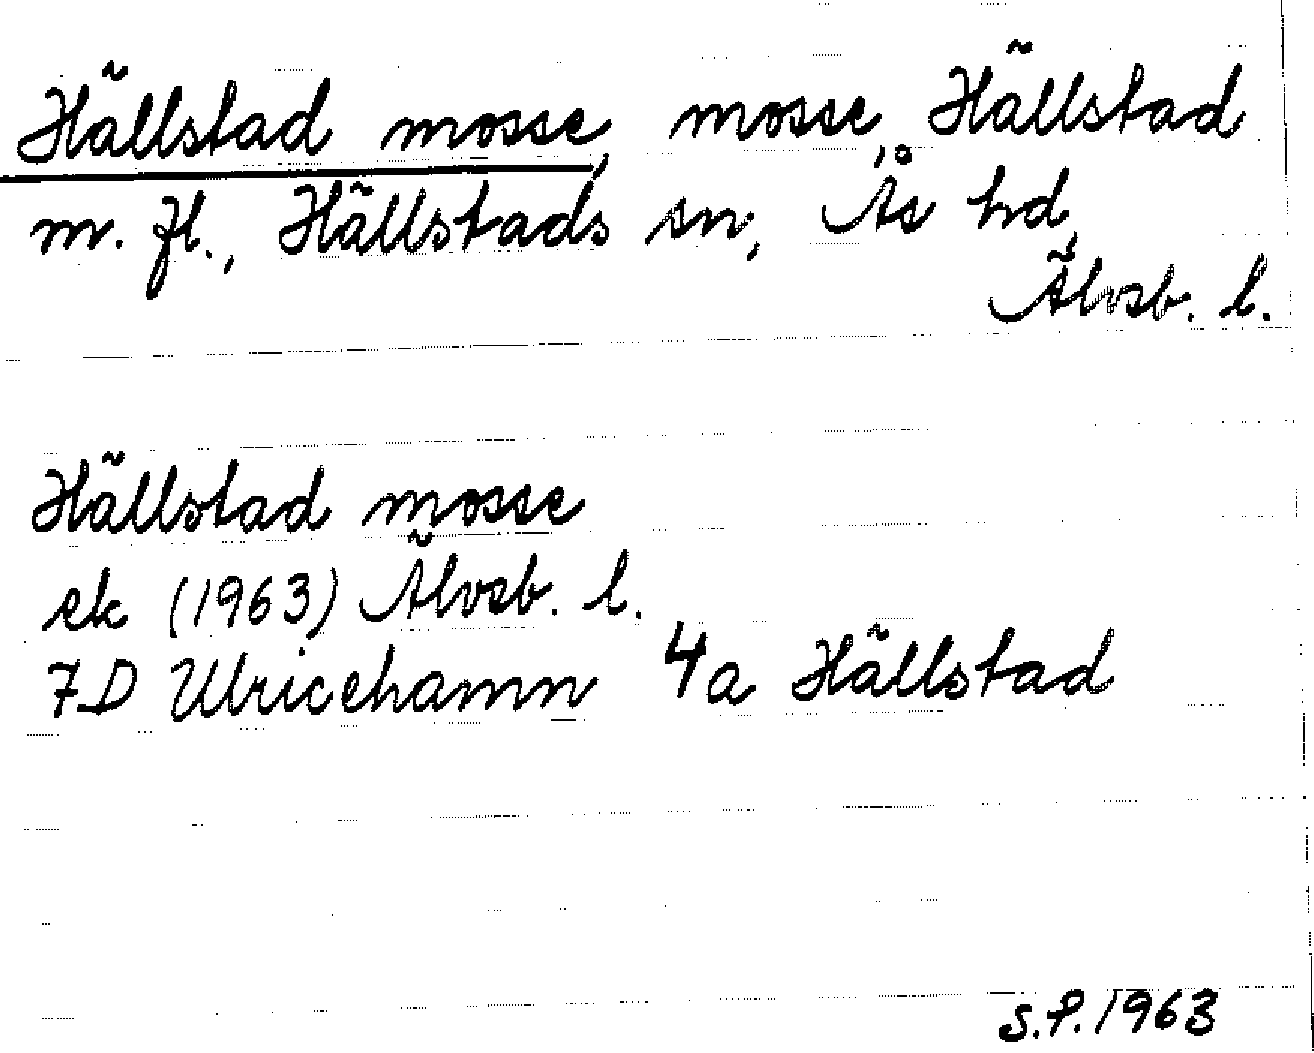 Hällstad mosse, mosse, Hällstad
m. fl., Hällstads sn, Ås hd,
Älvsb. l.
Hällstad mosse
ek (1963) Älvsb. l.
7D Ulricehamn 4a Hällstad
S.P. 1963